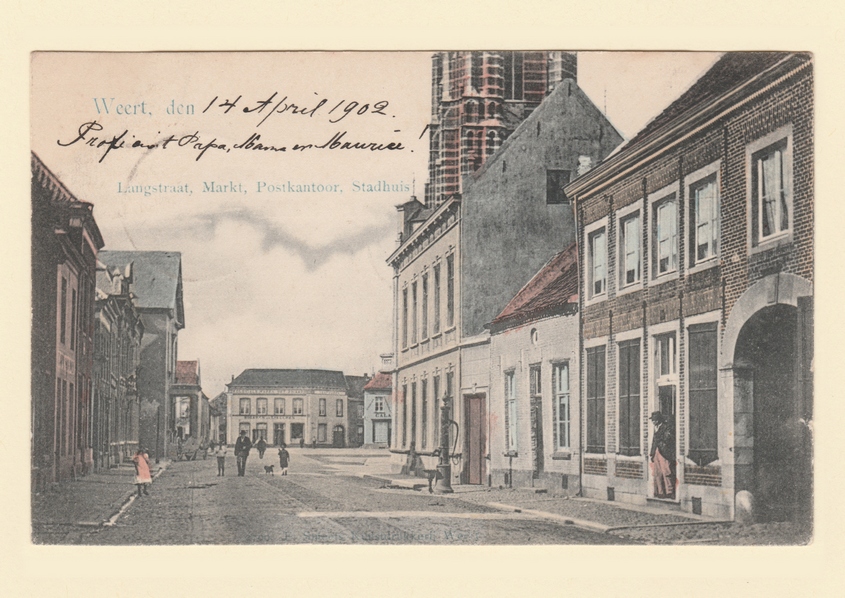 Weert, den 14 April 1902.
Proficiat Papa, Mama en Maurice!
Langstraat, Markt, Postkantoor, Stadhuis